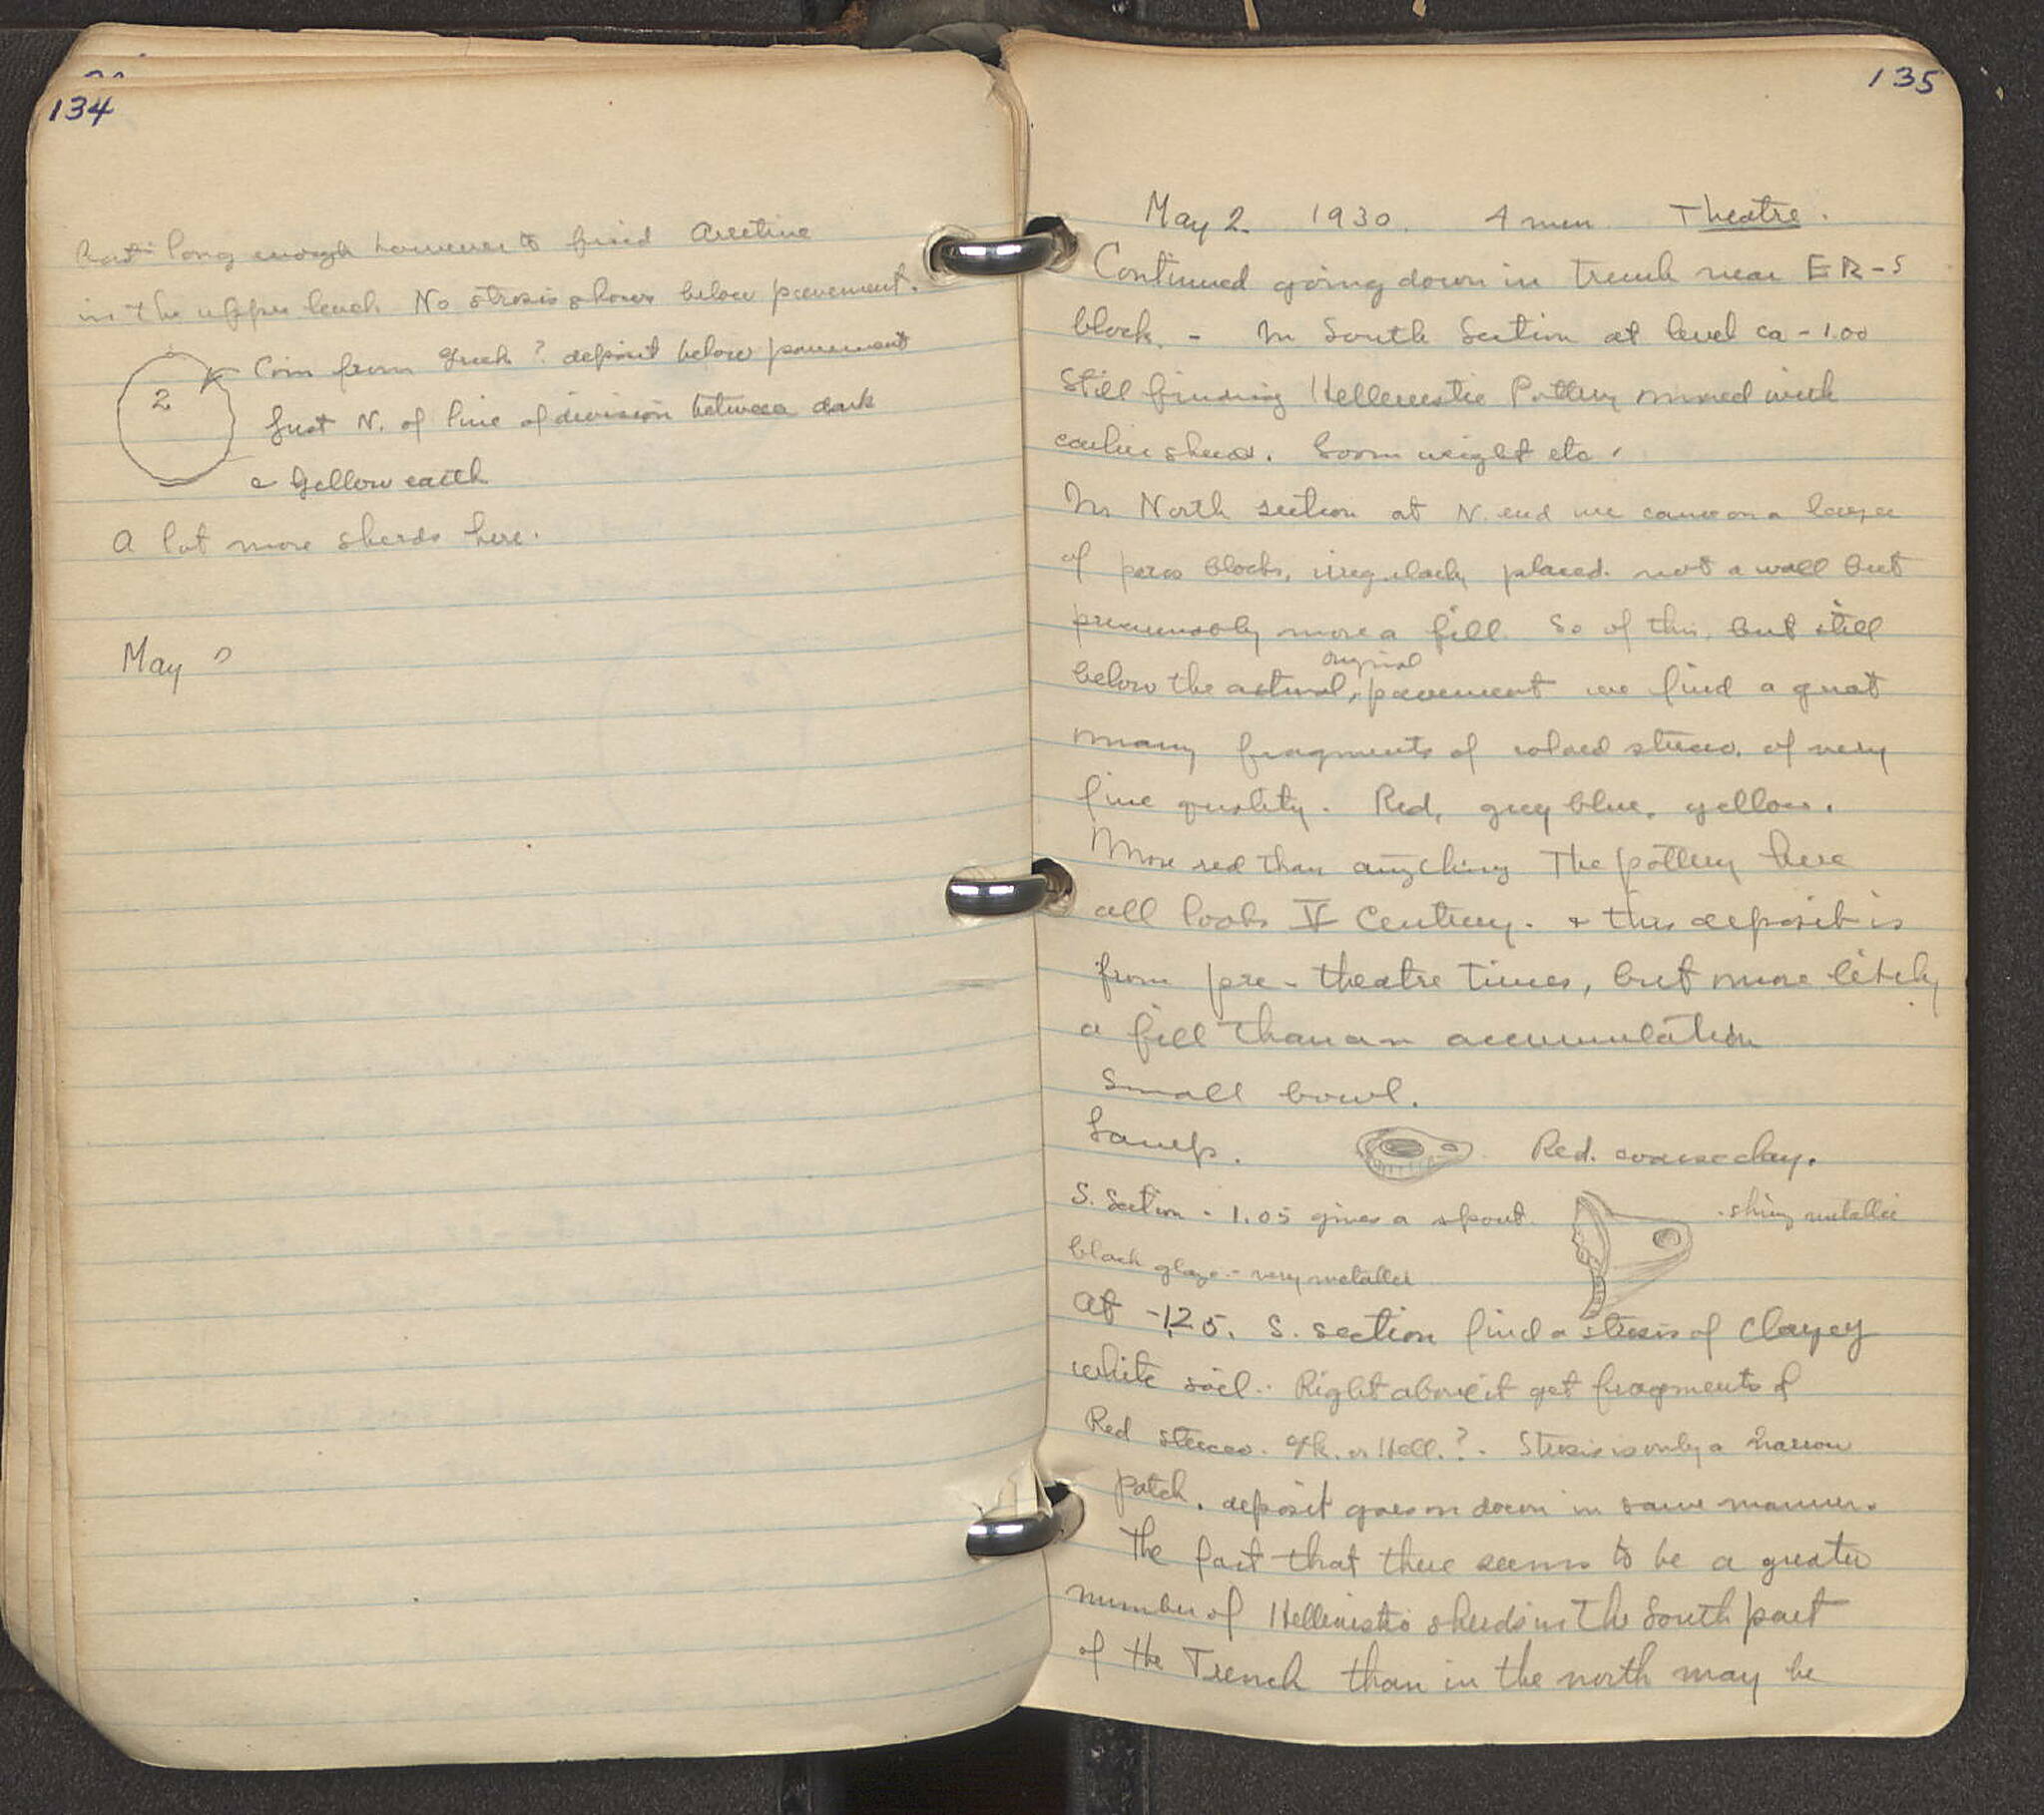 134
but long enough however to find Arretine
in the upper level. No strosis shows below pavement.
2
Coin from Greek ? deposit below pavement
just N. of line of division between dark
& yellow earth
A lot more sherds here.
May 2
135
May 2 1930. 4 men Theatre.
Continued going down in trench near ER-5
block. - In South Section at level ca - 1.00
still finding Hellenistic Pottery mixed with
earlier sherds. Loom weight etc.
In North section at N. end we came on a layer
of poros blocks, irregularly placed. not a wall but
presumably more a fill. So of this, but still
original
below the actual, pavement we find a great
many fragments of colored stucco, of very
fine quality. Red, grey blue, yellow.
More red than anything The pottery here
all looks V Century. & this deposit is
from pre-theatre times, but more likely
a fill than an accumulation
Small bowl.
Lamp. Red. coarse clay.
S. Section - 1.05 gives a spout. - shiny metallic
black glaze - very metallic
At -1.25. S. section find a strosis of Clayey
white soil. Right above it get fragments of
Red stucco. Gk. or Hell.? - Strosis is only a narrow
patch. deposit goes on down in same manner.
The fact that there seems to be a greater
number of Hellenistic sherds in the South part
of the Trench than in the north may be